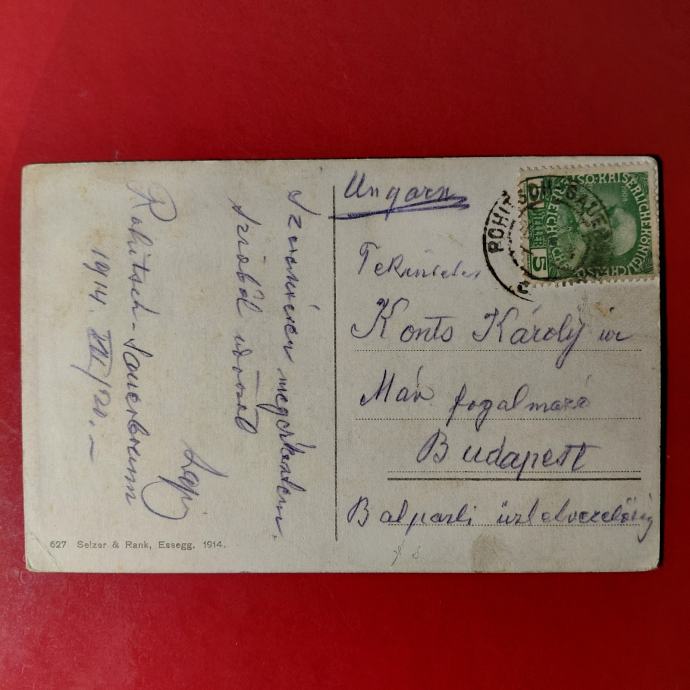 Szerencsésen megérkeztem.
szivből üdvözöl
Lapi
Rohitsch-Sauerbrunn
1914. VII/20.–
Ungarn
Tekintetes
Konts Károly úr
Máv fogalmazó
Budapest
Balparti üzletvezetőség
ROHITSCH-SAUER
5
627 Selzer & Rank, Essegg. 1914.